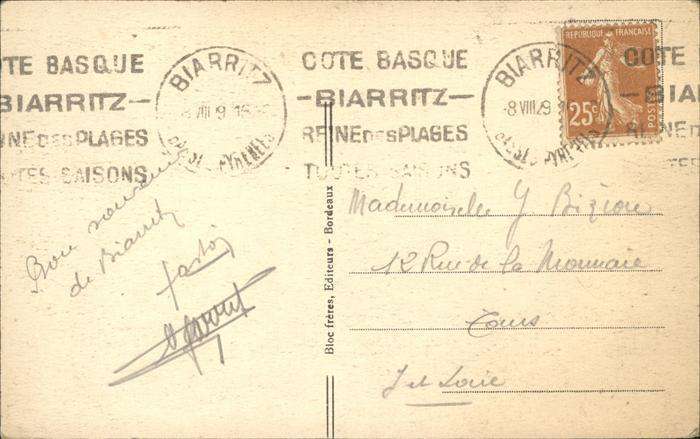 OTE BASQUE
BIARRITZ
INE DES PLAGES
TES SAISONS
BIARRITZ
COTE BASQUE
BIARRITZ
REINE DES PLAGES
TOUTES SAISONS
BIARRITZ
8 VIII 29
REPUBLIQUE FRANÇAISE
25c
POSTES
COTE
BIAR
Bon souvenir
de Biarritz
Bloc frères, Editeurs - Bordeaux
Mademoiselle Y Bizion
12 Rue de la Monnaie
Tours
I et Loire